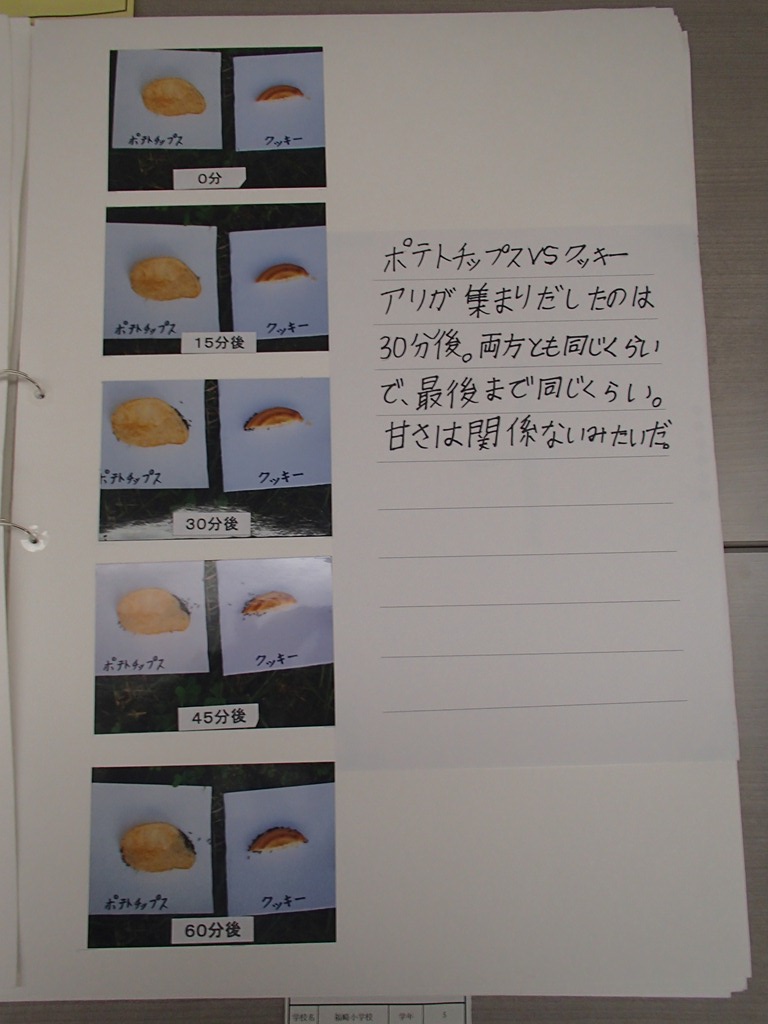 ポテトチップス
クッキー
0分
ポテトチップス
クッキー
15分後
ポテトチップス
クッキー
30分後
ポテトチップス
クッキー
45分後
ポテトチップス
クッキー
60分後
ポテトチップスVSクッキー
アリが集まりだしたのは
30分後。両方とも同じくらい
で、最後まで同じくらい。
甘さは関係ないみたいだ。
学校名 福崎小学校 学年